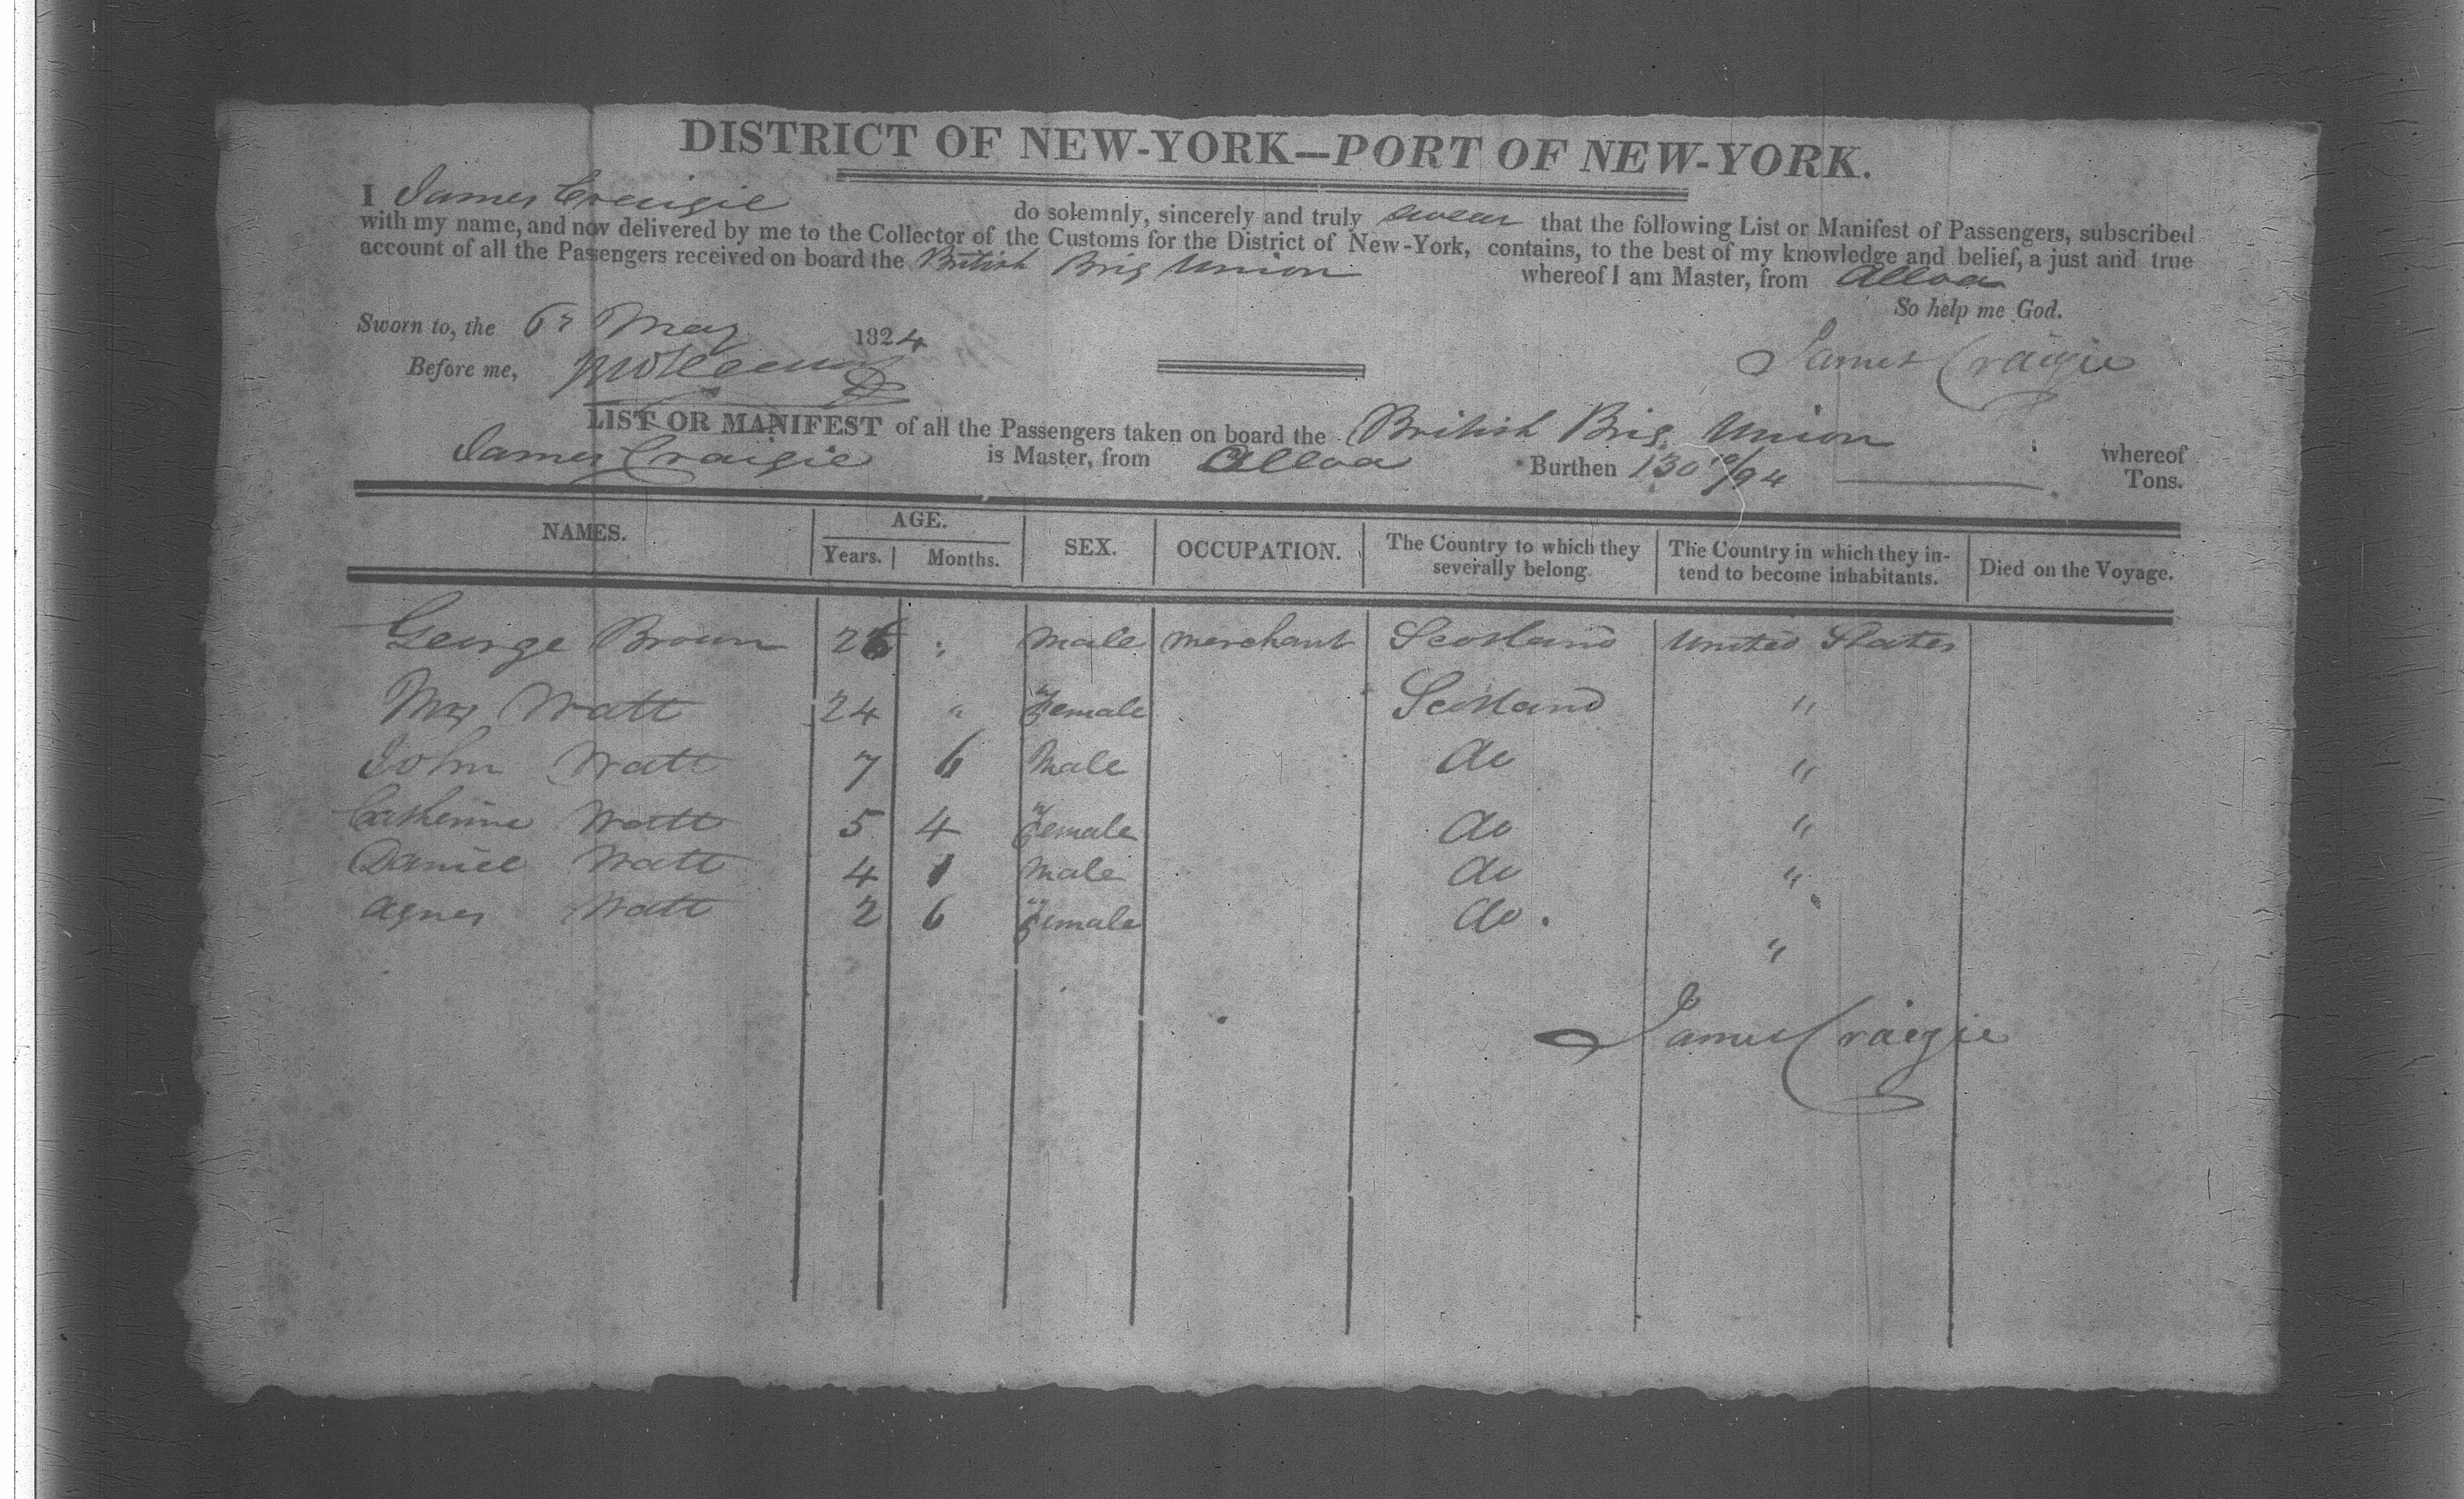 DISTRICT OF NEW-YORK—PORT OF NEW-YORK.
I James Creigie do solemnly, sincerely and truly swear that the following List or Manifest of Passengers, subscribed
with my name, and now delivered by me to the Collector of the Customs for the District of New-York, contains, to the best of my knowledge and belief, a just and true
account of all the Passengers received on board the British Brig Union whereof I am Master, from Alloa
So help me God.
Sworn to, the 6th May 1824
Before me,
James Craigie
LIST OR MANIFEST of all the Passengers taken on board the British Brig Union whereof
James Craigie is Master, from Alloa Burthen 130 /94 Tons.
NAMES. AGE. Years. Months. SEX. OCCUPATION. The Country to which they severally belong. The Country in which they intend to become inhabitants. Died on the Voyage.
George Brown 26 " male merchant Scotland United States
Mrs Watt 24 " Female Scotland "
John Watt 7 6 Male do "
Catherine Watt 5 4 Female do "
Daniel Watt 4 1 male do "
Agnes Watt 2 6 Female do. "
James Craigie